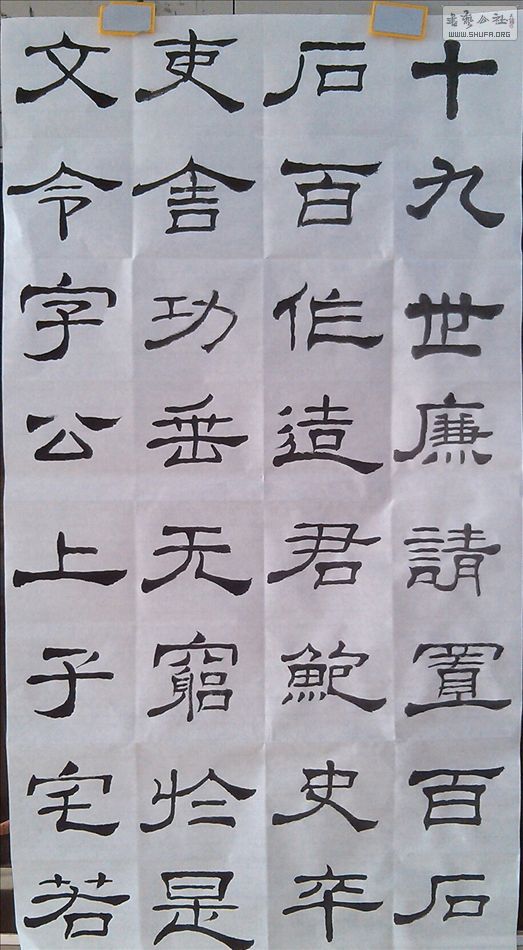 十九世廉請置百石
石百作造君鮑史卒
吏舍功垂无窮於是
文令字公上子宅若
书艺公社
WWW.SHUFA.ORG